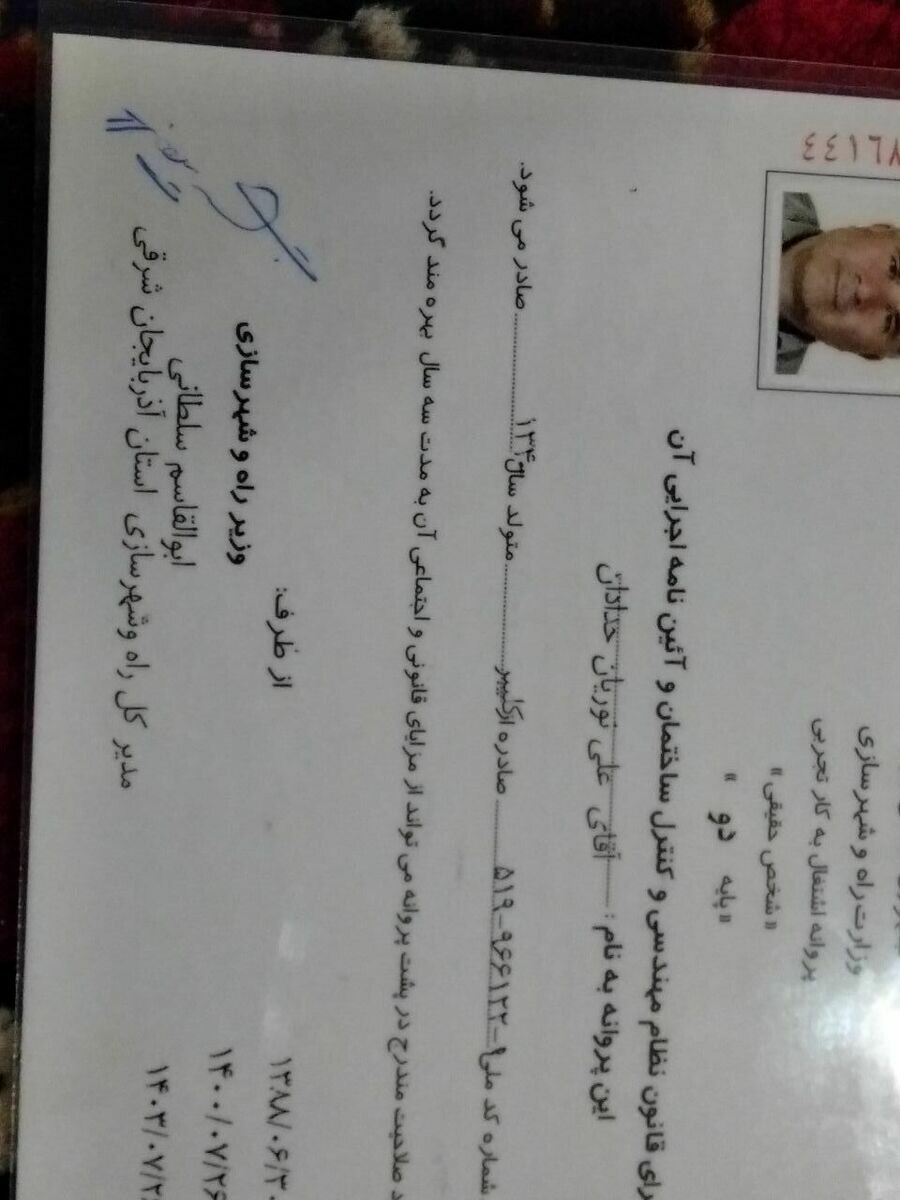 ۷۶۱۴۴
وزارت راه و شهرسازی
پروانه اشتغال به کار تجربی
«شخص حقیقی»
«پایه دو »
قانون نظام مهندسی و کنترل ساختمان و آئین نامه اجرایی آن
این پروانه به نام : آقای علی نوریان
شماره کد ملی صادره از کلیبر متولد سال صادر می شود.
صلاحیت مندرج در پشت پروانه می تواند از مزایای قانونی و اجتماعی آن به مدت سه سال بهره مند گردد.
۱۳۸۸/۰۶/۳۰
از طرف:
وزیر راه و شهرسازی
۱۴۰۰/۰۷/۲۶
ابوالقاسم سلطانی
مدیر کل راه وشهرسازی استان آذربایجان شرقی
۱۴۰۳/۰۷/۲